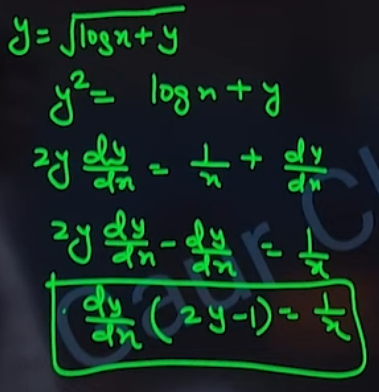 y = √(log x + y)
y² = log x + y
2y dy/dx = 1/x + dy/dx
2y dy/dx - dy/dx = 1/x
dy/dx (2y-1) = 1/x